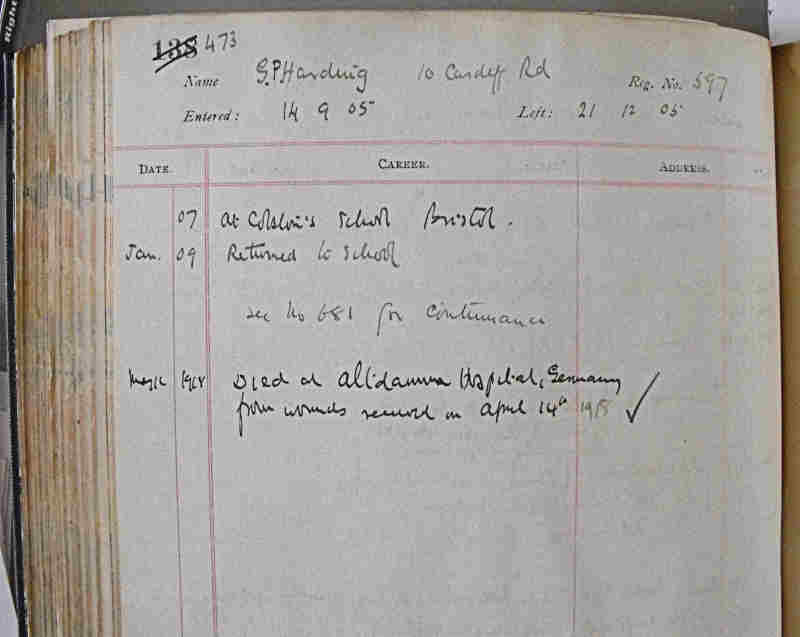 138 473
Name G.P Harding 10 Cardiff Rd Reg. No. 597
Entered: 14 9 05 Left: 21 12 05
DATE. CAREER. ADDRESS.
07 At Colston's School Bristol.
Jan. 09 Returned to School
see No 681 for continuance
May 12 1918 Died at Alldamm Hospital, Germany
from wounds received on April 14th 1918 ✓